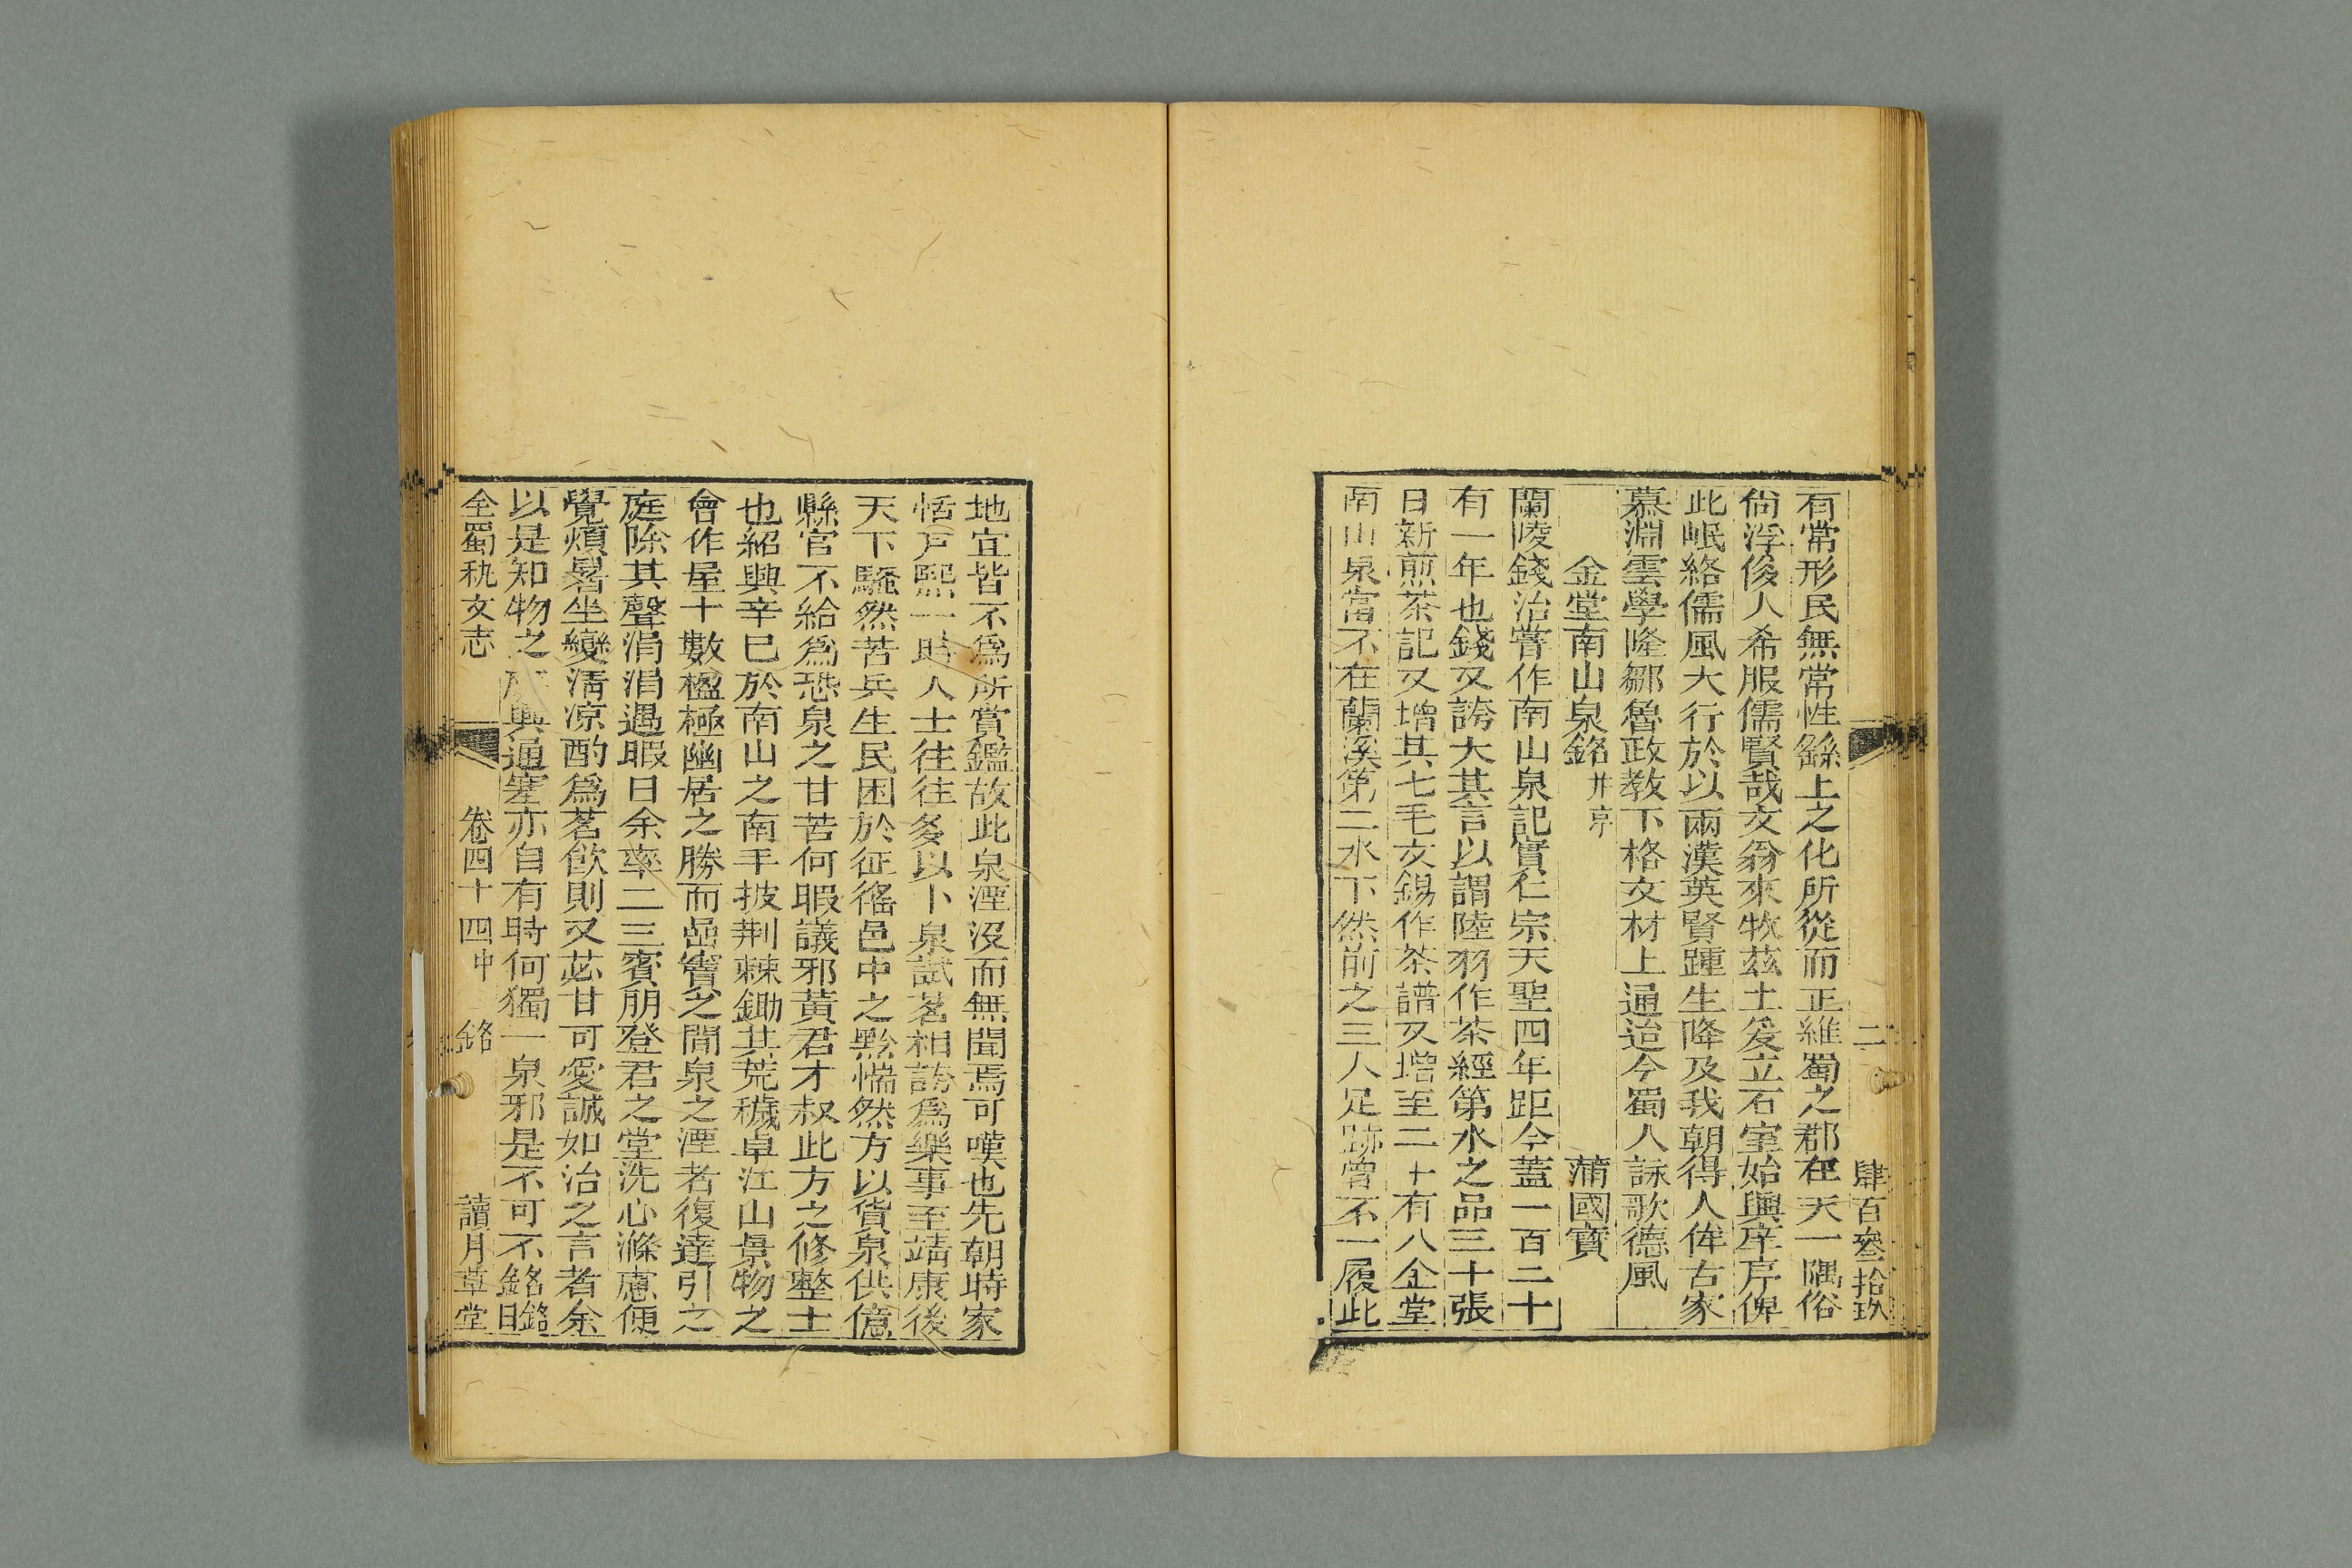 二 肆百叄拾玖
有常形民無常性繇上之化所從而正維蜀之郡在天一隅俗
尙浮俊人希服儒賢哉文翁來牧茲土爰立石室始興庠序俾
此岷絡儒風大行於以兩漢英賢踵生降及我朝得人侔古家
慕淵雲學隆鄒魯政敎下格文材上通迨今蜀人詠歌德風
金堂南山泉銘 并序 蒲國寶
蘭陵錢治嘗作南山泉記實仁宗天聖四年距今蓋一百二十
有一年也錢又誇大其言以謂陸羽作茶經第水之品三十張
日新煎茶記又增其七毛文錫作茶譜又增至二十有八金堂
南山泉當不在蘭溪第二水下然前之三人足跡曾不一履此
地宜皆不爲所賞鑑故此泉湮沒而無聞焉可嘆也先朝時家
恬戶熙一時人士往往多以卜泉試茗相誇爲樂事至靖康後
天下騷然苦兵生民困於征徭邑中之黔惴然方以貨泉供億
縣官不給爲恐泉之甘苦何暇議邪黃君才叔此方之修整士
也紹興辛巳於南山之南手披荆棘鋤其荒穢卓江山景物之
會作屋十數楹極幽居之勝而嵒竇之閒泉之湮者復達引之
庭除其聲涓涓遇暇日余率二三賓朋登君之堂洗心滌慮便
覺煩暑坐變淸凉酌爲茗飮則又苾甘可愛誠如治之言者余
以是知物之廢興通塞亦自有時何獨一泉邪是不可不銘銘曰
全蜀秇文志 卷四十四中 銘 讀月草堂